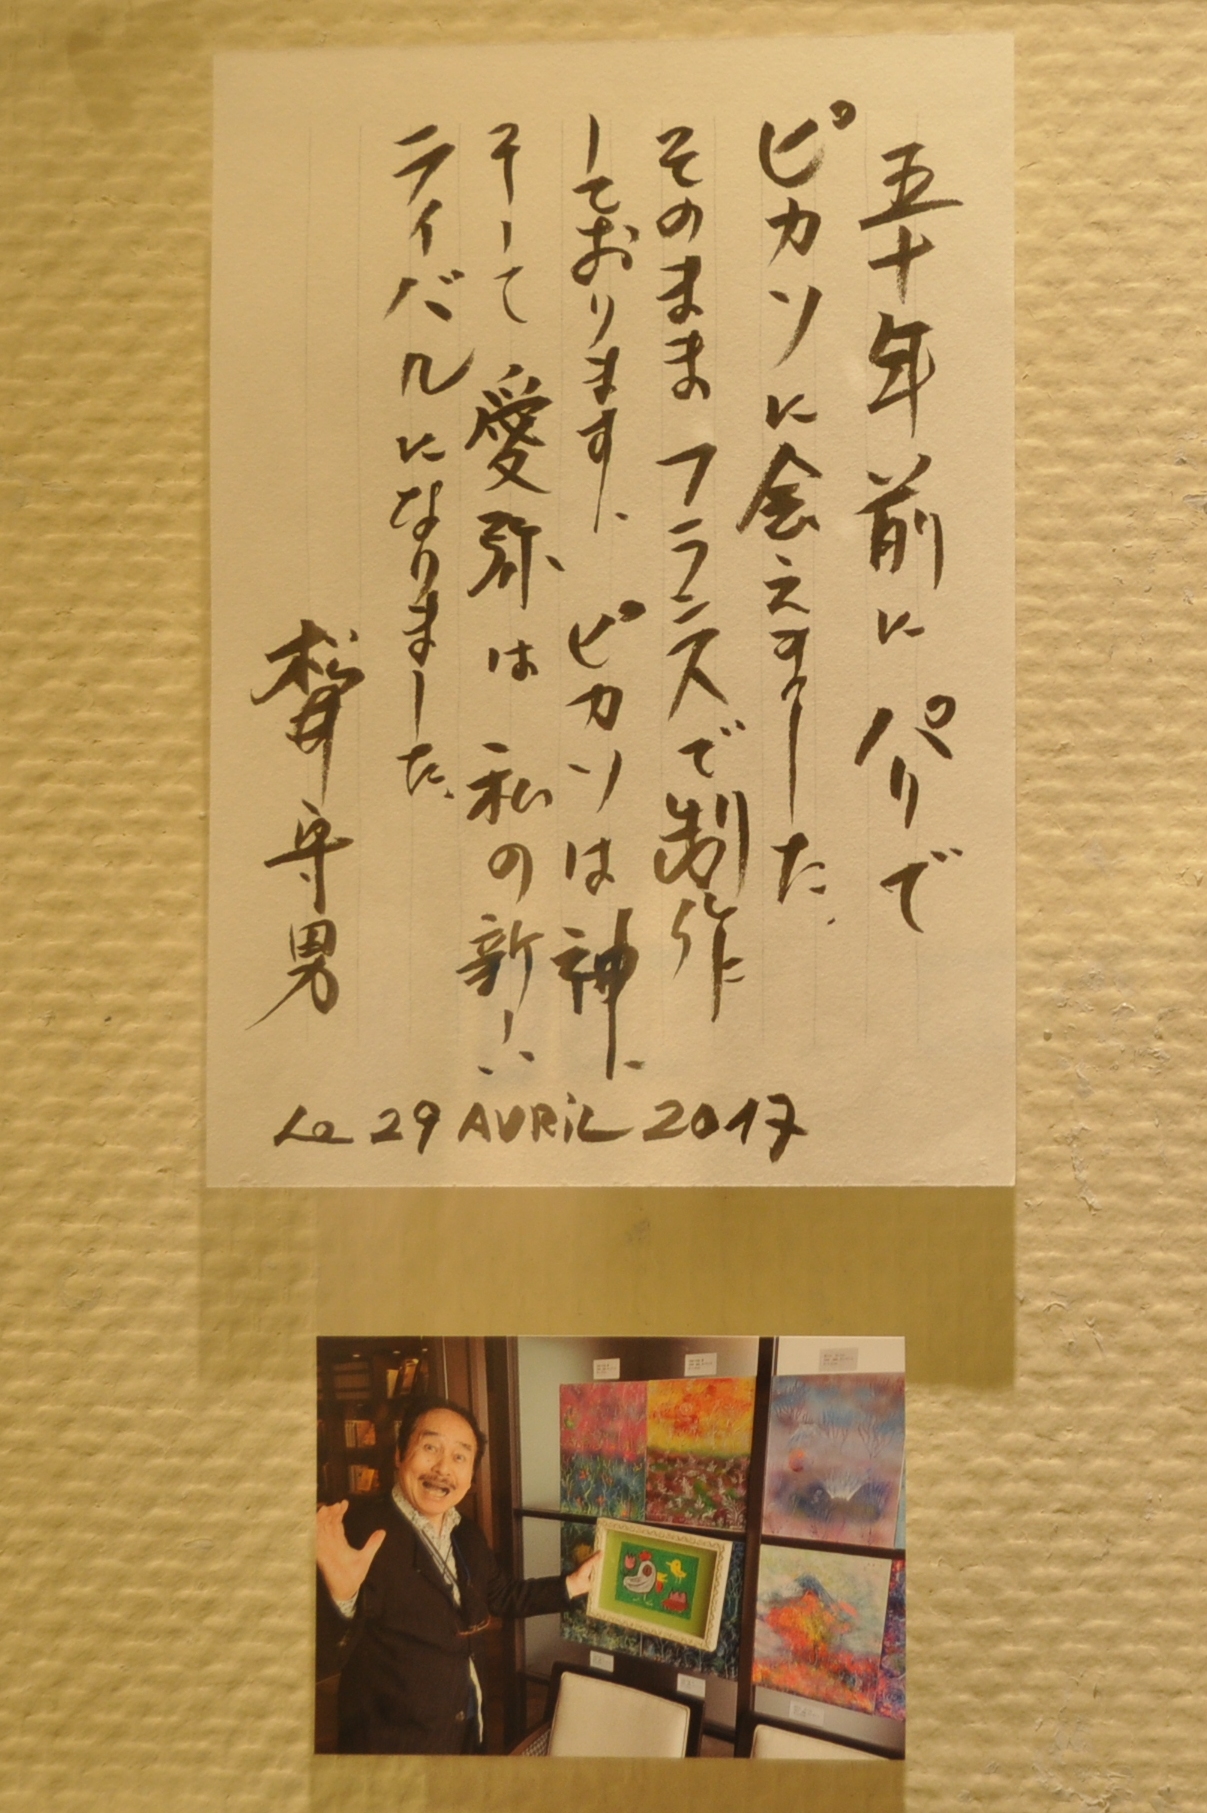 五十年前にパリで
ピカソに会えました。
そのままフランスで制作
しております、ピカソは神、
そして愛弥は私の新しい
ライバルになりました。
松井守男
Le 29 AVRiL 2017